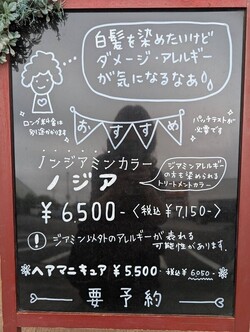 白髪を染めたいけど
ダメージ・アレルギー
が気になるなあ
ロング料金は
別途かかります
パッチテストが
必要です
おすすめ
ノンジアミンカラー
ノジア
ジアミンアレルギー
の方も染められる
トリートメントカラー
¥6,500-〈税込¥7,150-〉
! ジアミン以外のアレルギーが表れる
可能性があります。
ヘアマニキュア ¥5,500- 税込¥6,050-
要予約